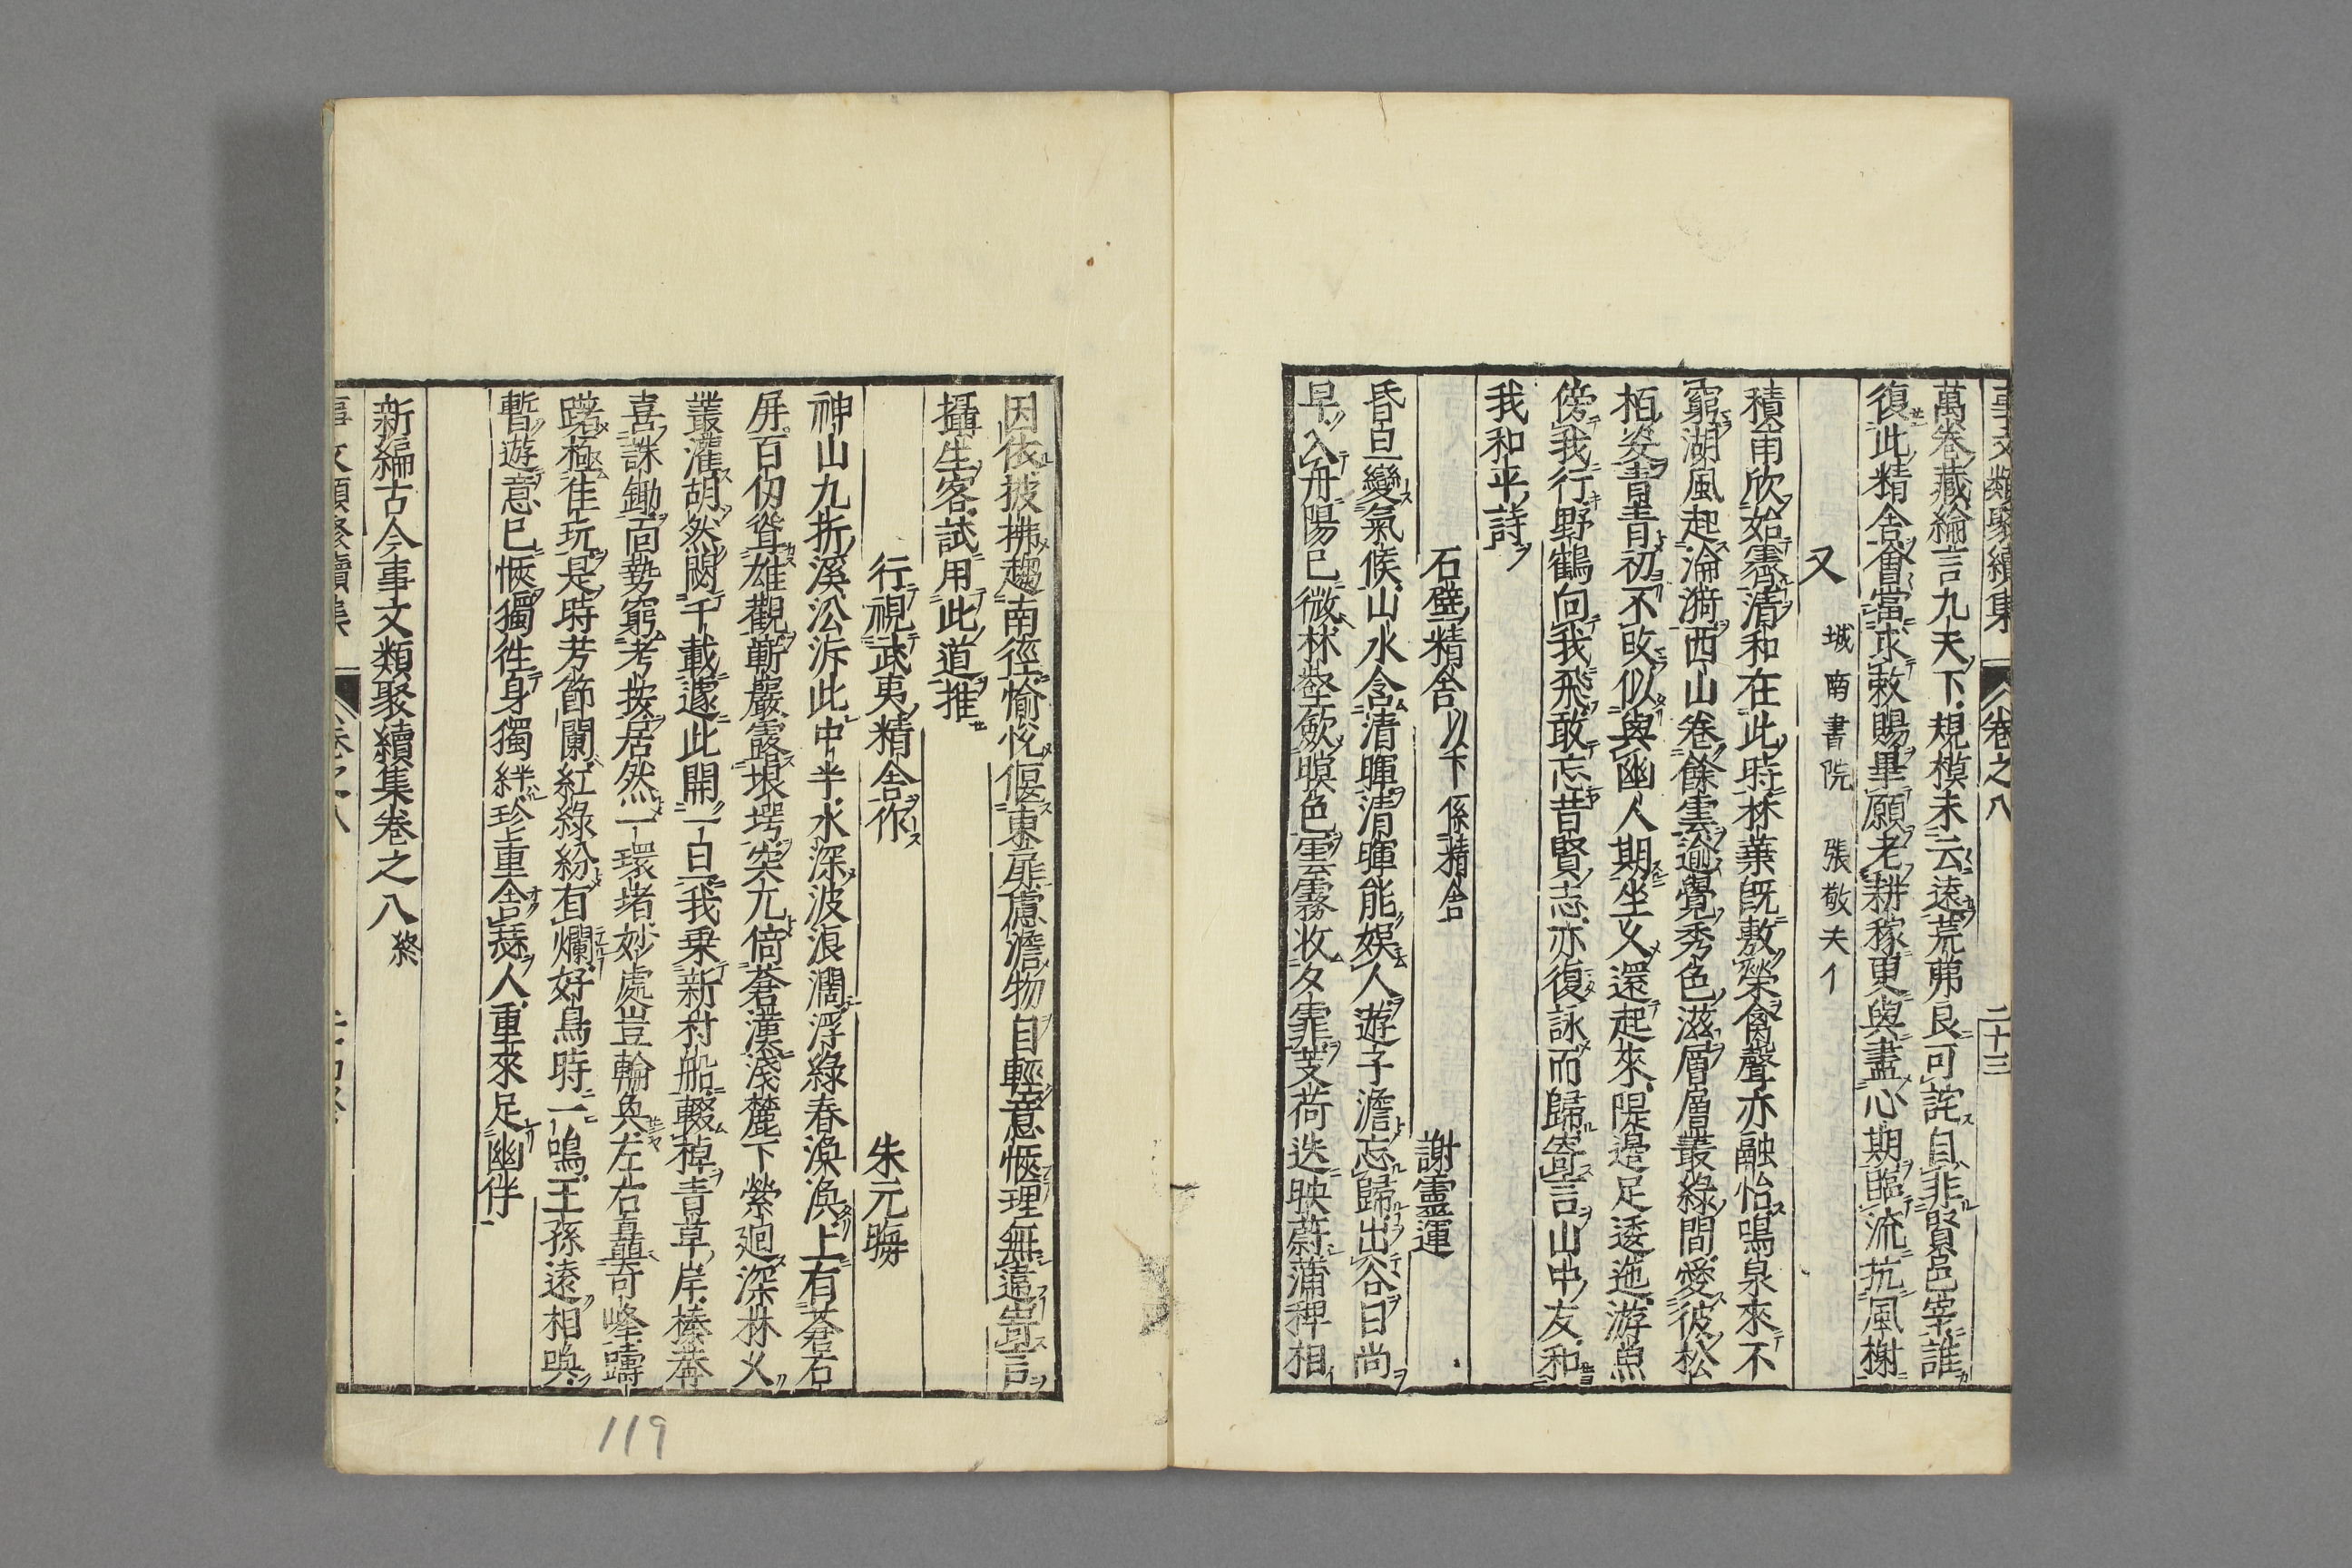 事文類聚續集 卷之八 二十三
萬卷藏綸言九天下規模未云遠荒茀良可詫自非賢邑宰誰
復此精舍會當求敕賜畢願老耕稼更與盡心期臨流抗風榭
又 城南書院 張敬夫
積雨欣始霽清和在此時林葉既敷榮禽聲亦融怡鳴泉來不
窮湖風起淪漪西山卷餘雲逾覺秀色滋層層叢綠間愛彼松
栢姿青青初不改似與幽人期坐久還起來隄邊足逶迤游魚
傍我行野鶴向我飛敢忘昔賢志亦復詠而歸寄言山中友和
我和平詩
石壁精舍 以下係精舍 謝靈運
昏旦變氣候山水含清暉清暉能娯人遊子澹忘歸出谷日尚
早入舟陽已微林壑歛暝色雲霧收夕霏芰荷迭映蔚蒲稗相
因依披拂趨南徑愉悅偃東扉慮澹物自輕意愜理無違寄言
攝生客試用此道推
行視武夷精舍作 朱元晦
神山九折溪沿泝此中半水深波浪濶浮綠春渙渙上有蒼石
屏百仞聳雄觀嶄巖露垠堮突兀倚蒼漢淺麓下縈廻深林久
叢灌胡然閟千載遽此開一旦我乗新村船輟棹青草岸榛莽
喜誅鋤面勢窮考按居然一環堵妙處豈輪奐左右矗奇峰躊
躇極佳玩是時芳節闌紅綠紛有爛好鳥時一鳴王孫遠相喚
暫遊意已愜獨徃身獨絆珍重舍瑟人重來足幽伴
新編古今事文類聚續集卷之八 終
事文類聚續集 卷之八
119